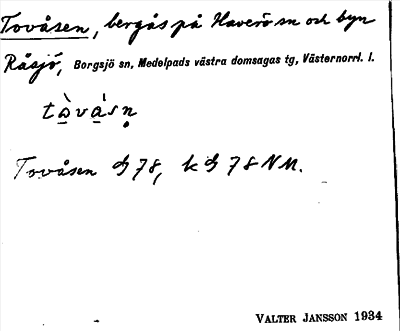 Tovåsen, bergås på Haverö sn och byn
Råsjö, Borgsjö sn, Medelpads västra domsagas tg, Västernorrl. l.
Tovåsen 78, k 78 NM.
VALTER JANSSON 1934